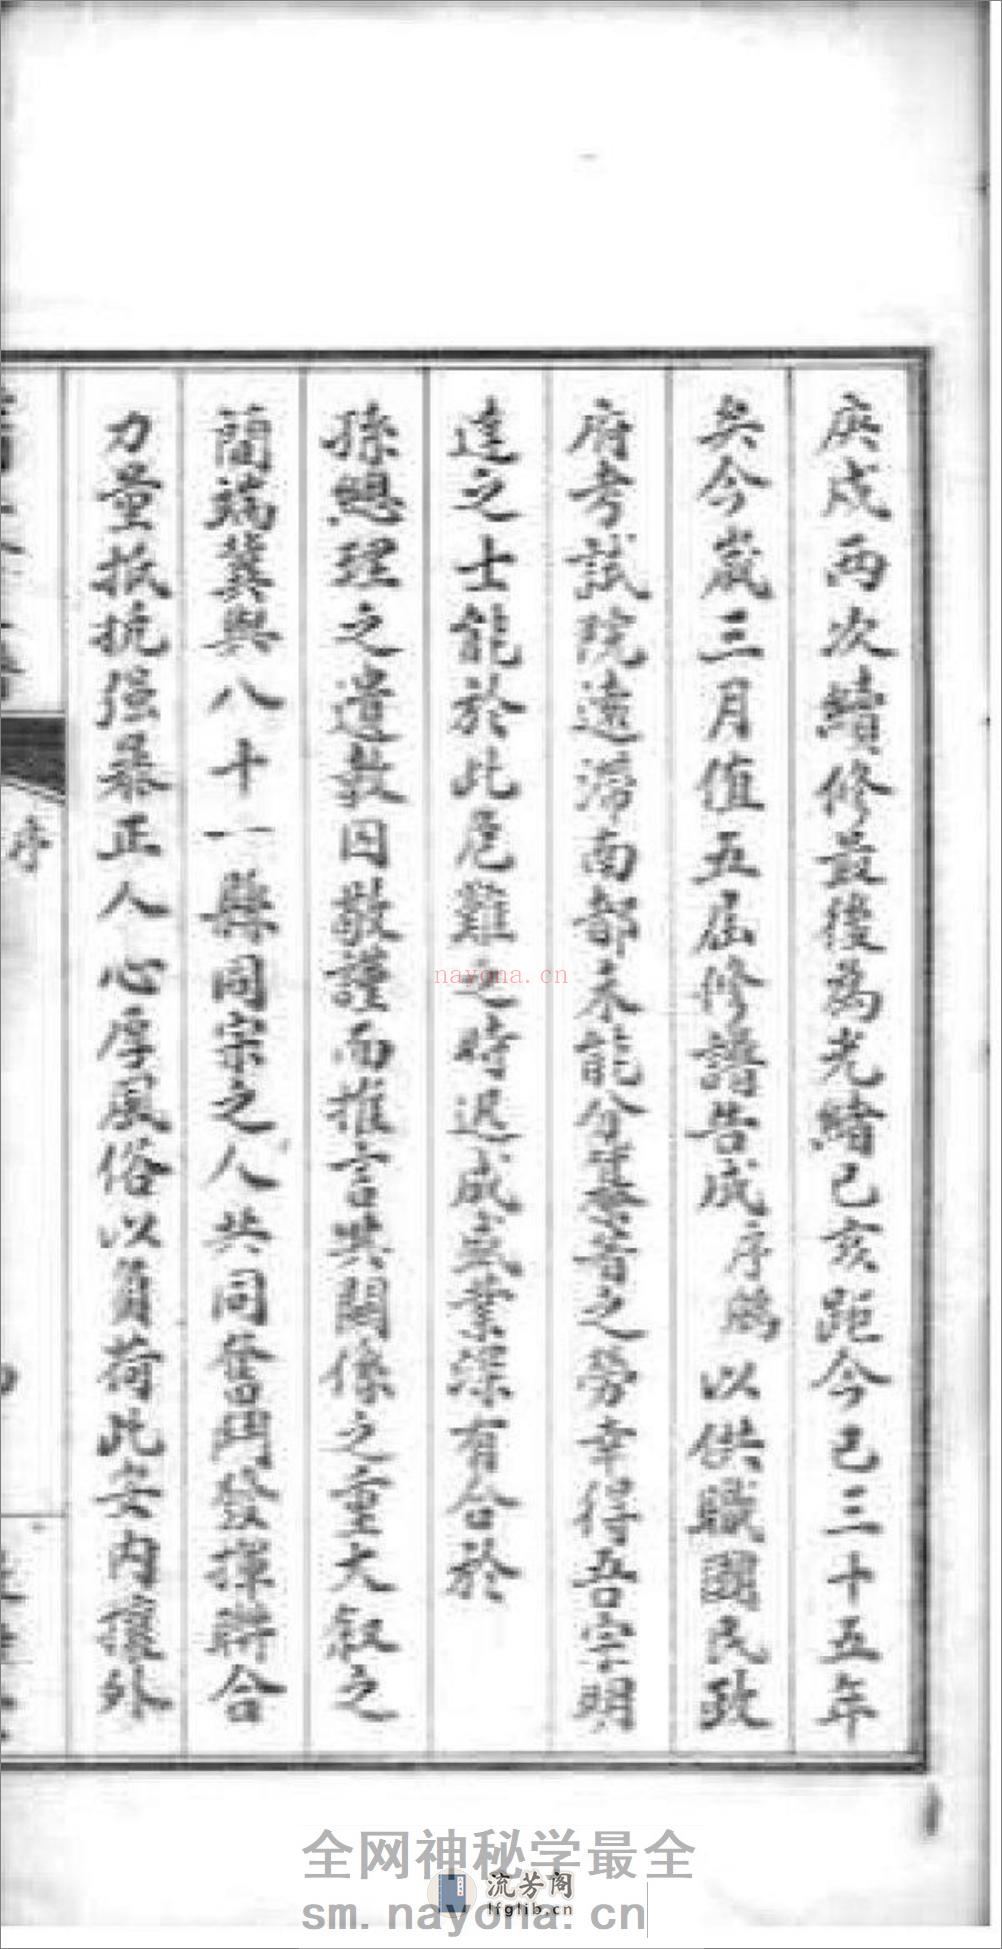 庚戌兩次續修最後為光緒己亥距今已三十五年
矣今嵗三月值五屆修譜告成序鵬以供職國民政
府考試院遠滯南都未能分其勞幸得吾宗明
達之士能於此危難之時迅成盛業深有合於
孫總理之遺教因敬謹而推言其關係之重大叙之
簡端冀與八十一縣同宗之人共同奮鬥發揮聯合
力量抵抗强暴正人心厚風俗以負荷此安內攘外
序
nayona.cn
全网神秘学最全
流芳阁
lfglib.cn
sm.nayona.cn